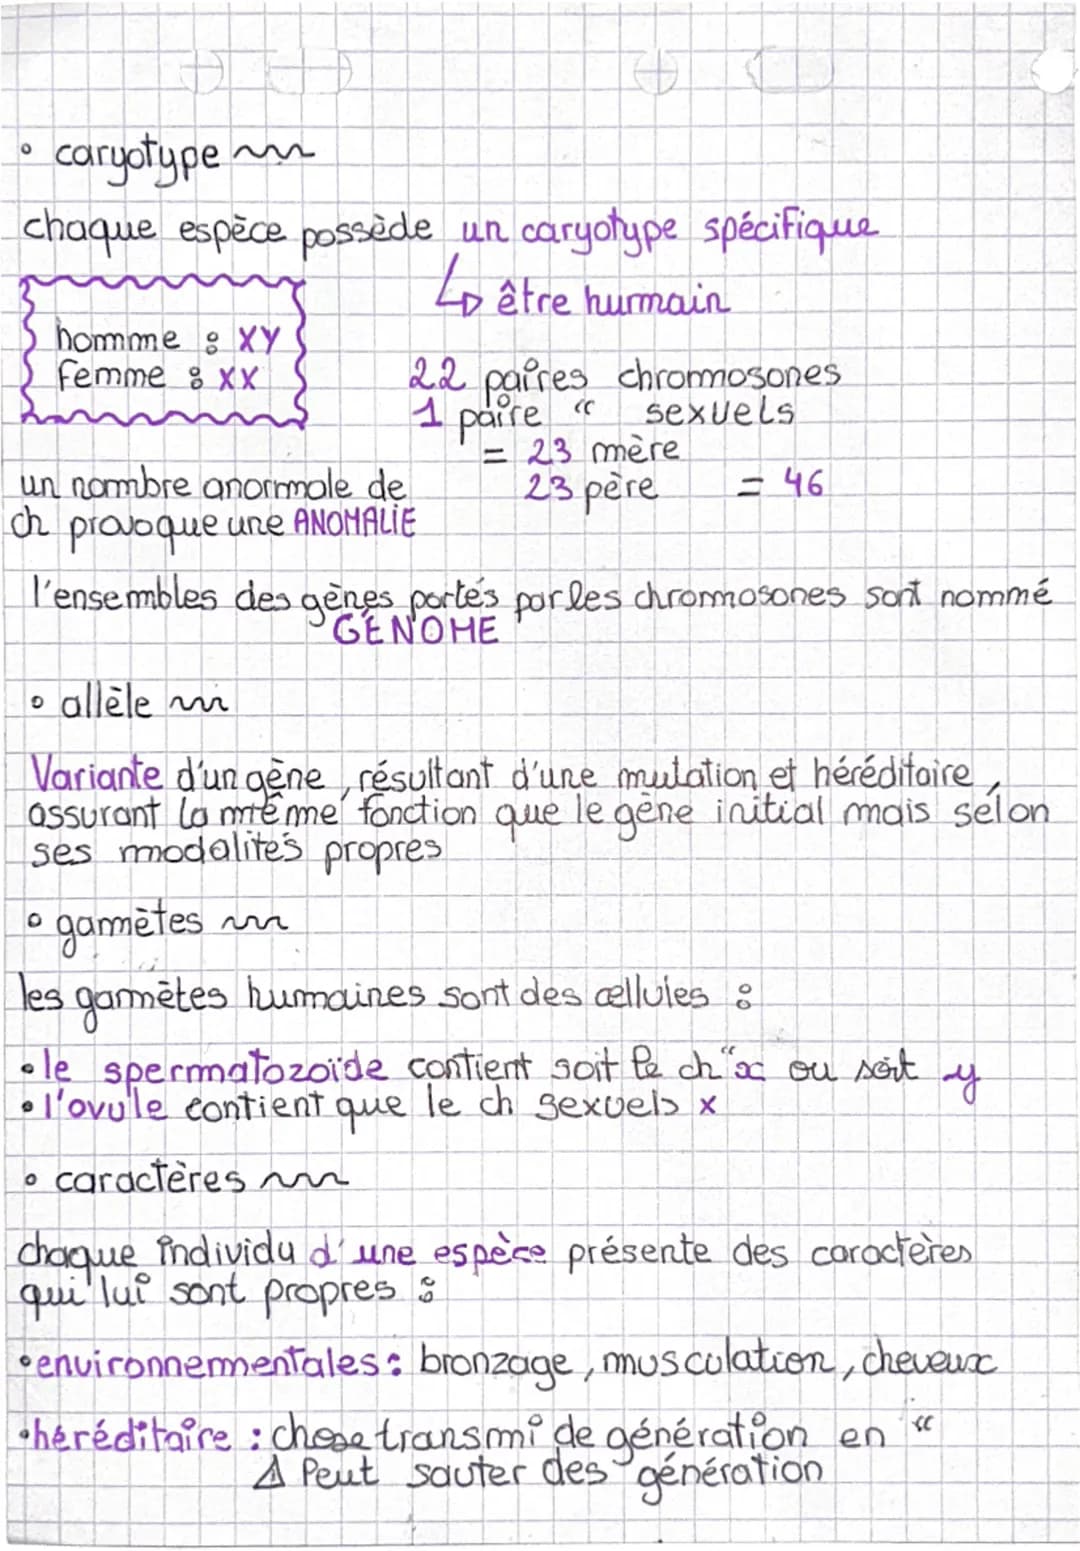 • caryotype
chaque espèce possède un caryotype spécifique
↳ être humain
homme : XY
femme : XX
22 paires chromosones
1 paire " sexuels
= 23 mère
23 père = 46
un nombre anormale de
ch provoque une ANOMALIE
l'ensembles des gènes portés par les chromosones sont nommé
GÉNOME
• allèle
Variante d'un gène, résultant d'une mutation et héréditaire,
assurant la même fonction que le gène initial mais sélon
ses modalités propres
• gamètes
les gamètes humaines sont des cellules :
• le spermatozoïde contient soit le ch " x ou soit y
• l'ovule contient que le ch sexuels x
• caractères
chaque individu d'une espèce présente des caractères
qui lui sont propres :
• environnementales : bronzage, musculation, cheveux
• héréditaire : chose transmi de génération en "
⚠ Peut sauter des génération